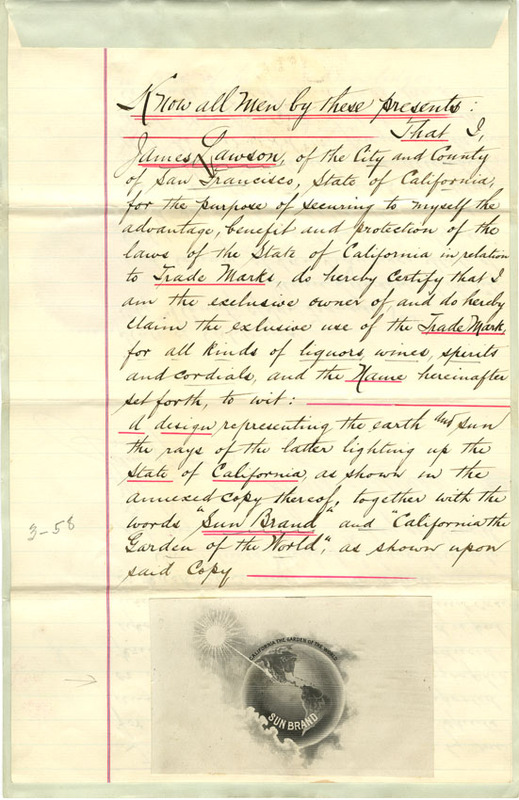 Know all Men by these presents:
That I,
James Lawson, of the City and County
of San Francisco, State of California,
for the purpose of securing to myself the
advantage, benefit and protection of the
laws of the State of California in relation
to Trade Marks, do hereby certify that I
am the exclusive owner of and do hereby
claim the exlusive use of the Trade Mark,
for all kinds of liquors, wines, spirits
and cordials, and the Name hereinafter
set forth, to wit:
A design representing the earth and sun
the rays of the latter lighting up the
State of California, as shown in the
annexed copy thereof, together with the
words "Sun Brand", and "California the
Garden of the World", as shown upon
said Copy
3-58
CALIFORNIA THE GARDEN OF THE WORLD
SUN BRAND